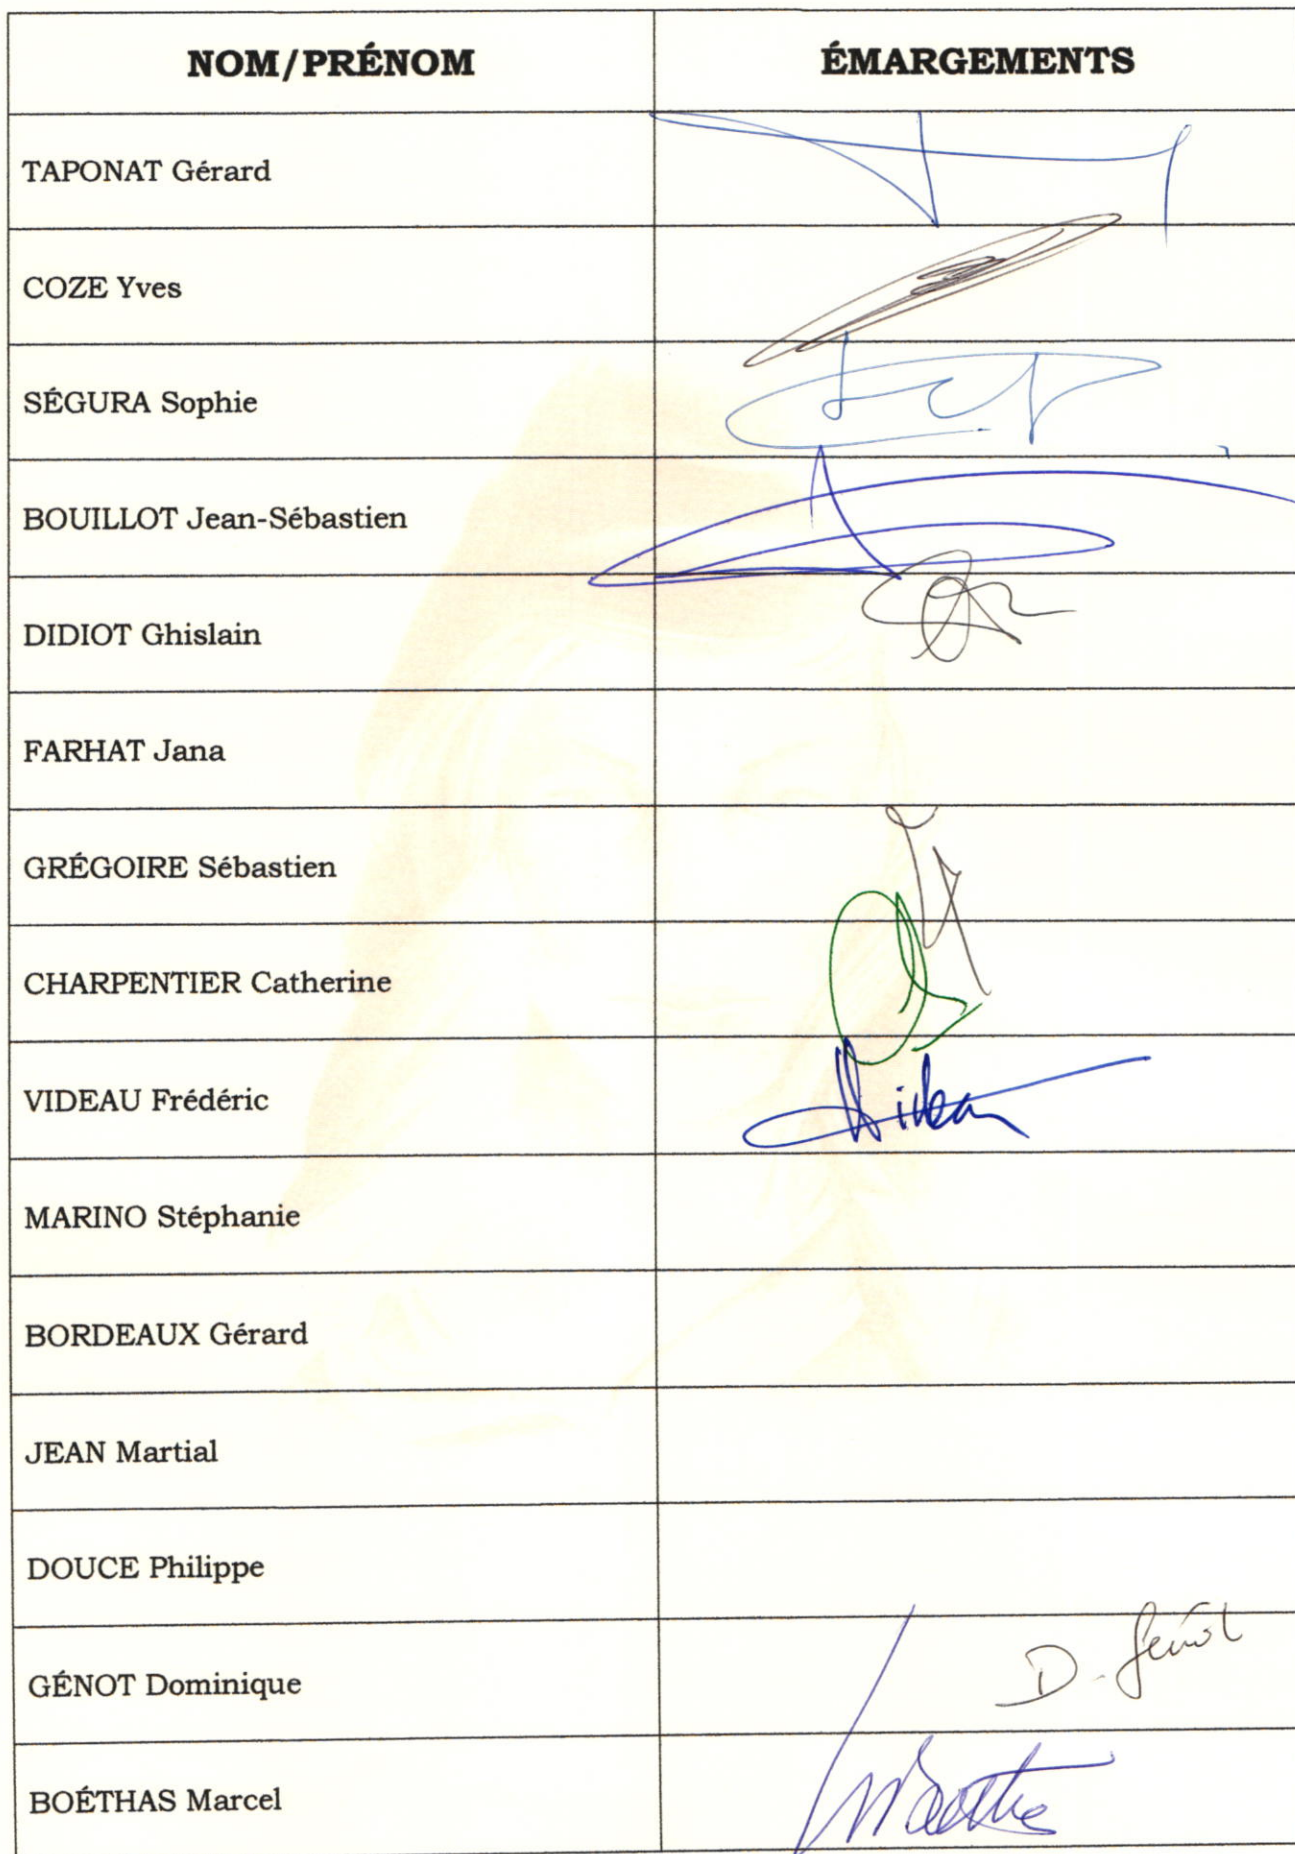 NOM/PRÉNOM ÉMARGEMENTS
TAPONAT Gérard
COZE Yves
SÉGURA Sophie
BOUILLOT Jean-Sébastien
DIDIOT Ghislain
FARHAT Jana
GRÉGOIRE Sébastien
CHARPENTIER Catherine
VIDEAU Frédéric
MARINO Stéphanie
BORDEAUX Gérard
JEAN Martial
DOUCE Philippe
GÉNOT Dominique D. Génot
BOÉTHAS Marcel